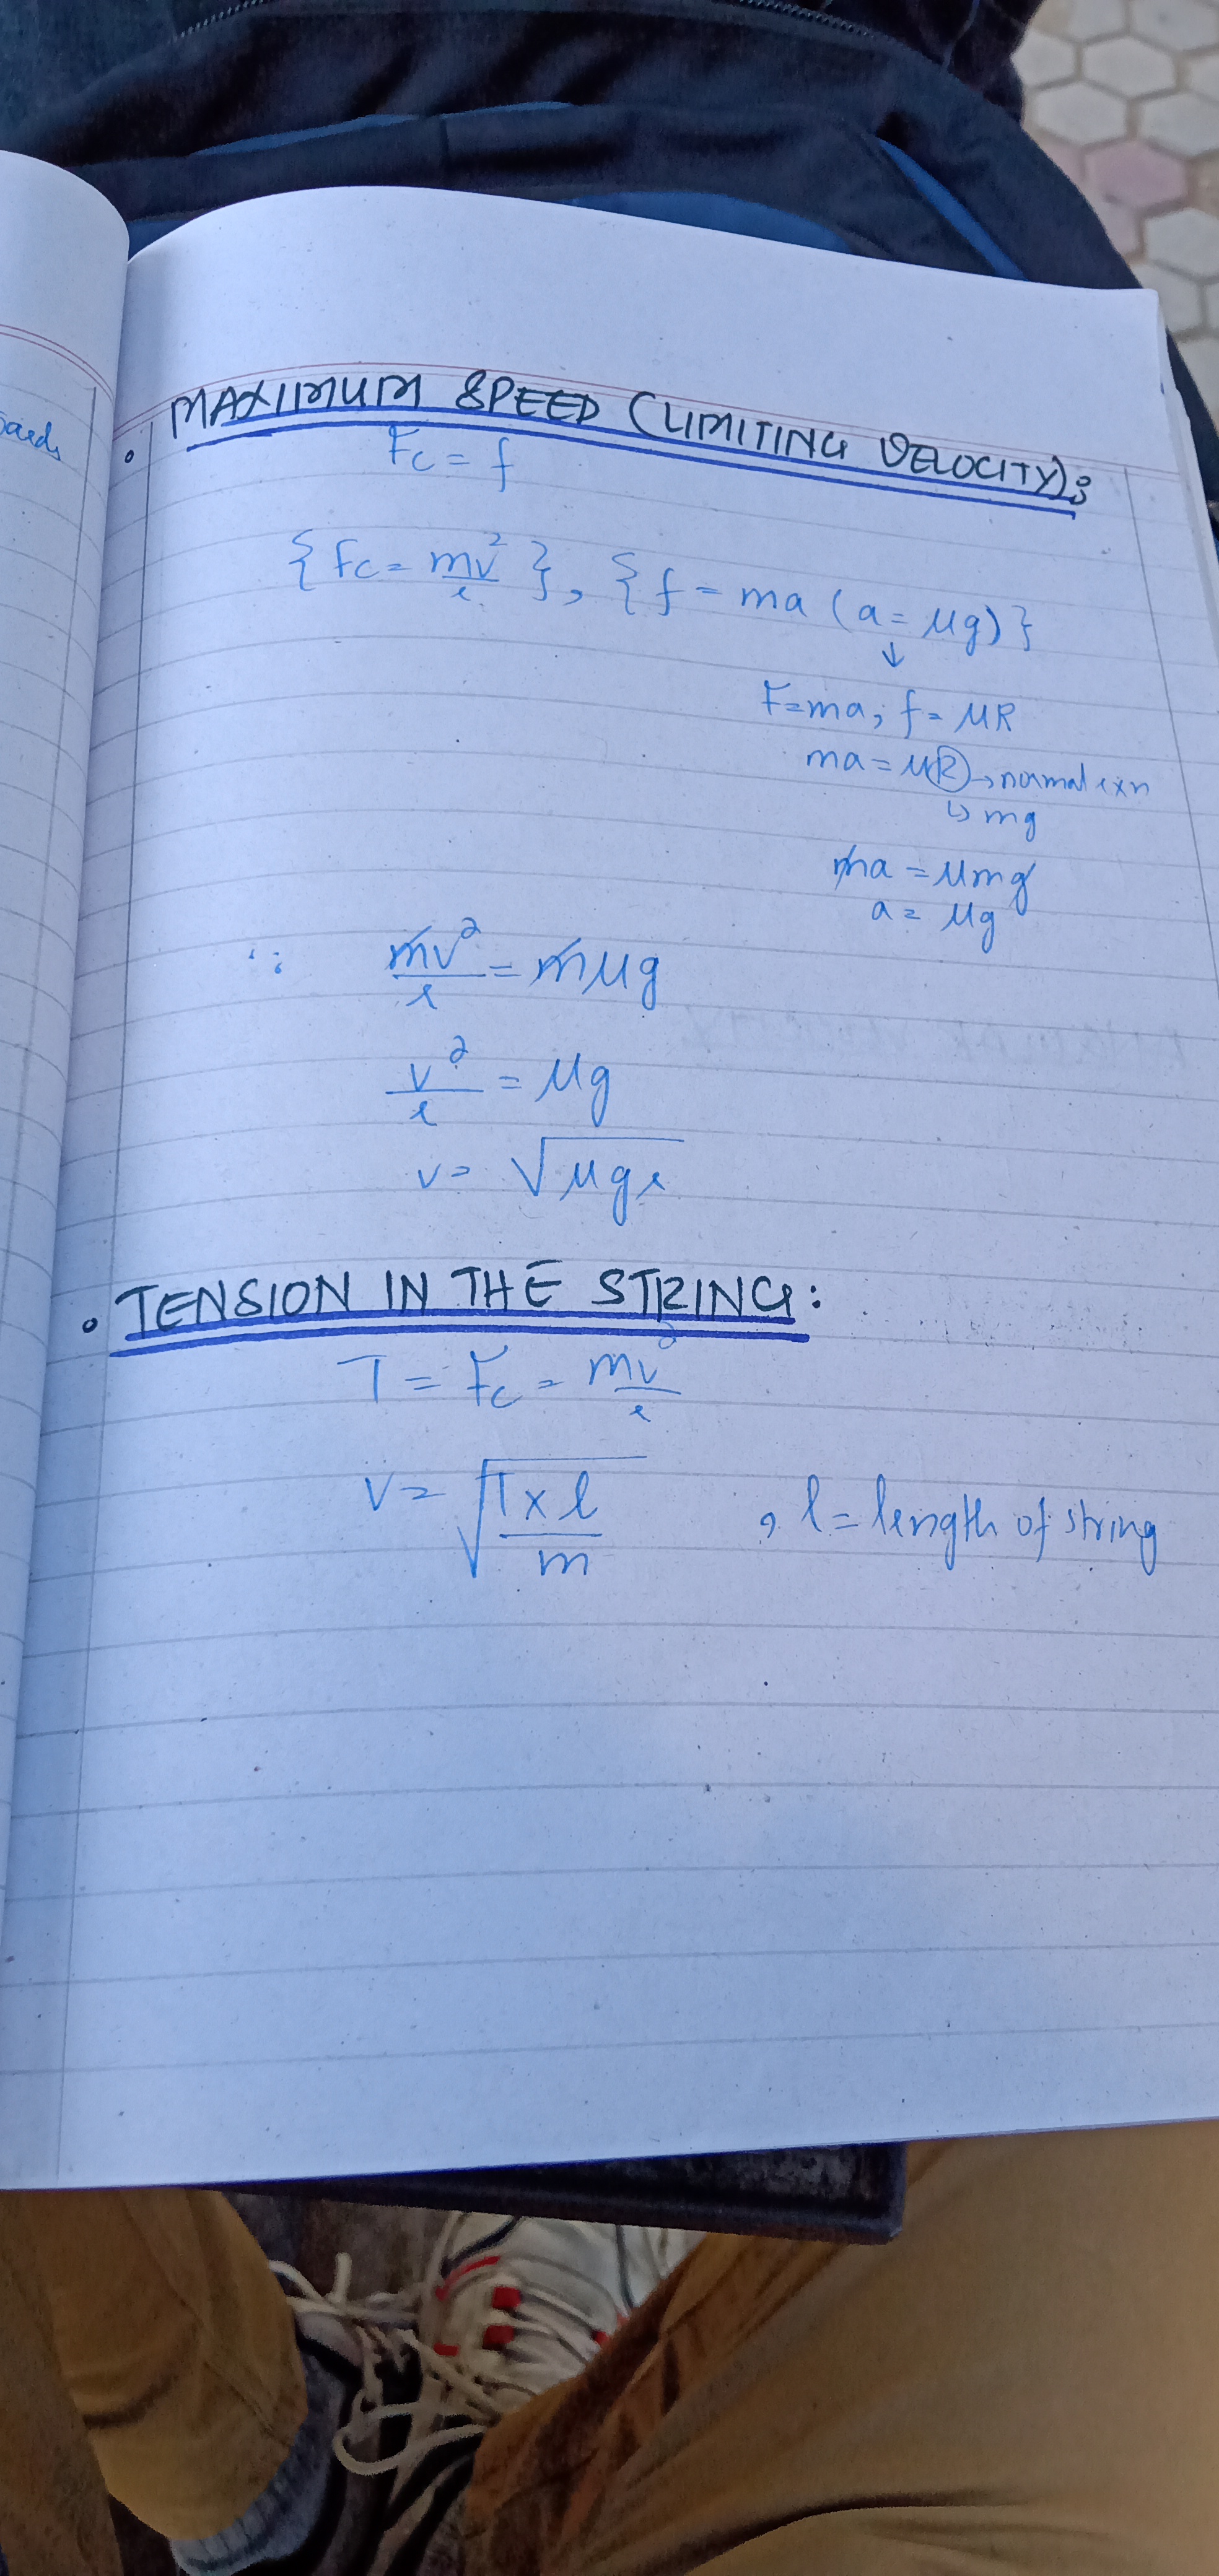 • MAXIMUM SPEED (LIMITING VELOCITY):
Fc = f
{Fc = mv²/r}, {f = ma (a = μg)}
↓
F=ma, f = μR
ma = μR → normal rxn
↳ mg
ma = μmg
a = μg
∴ mv²/r = mμg
v²/r = μg
v = √μgr
• TENSION IN THE STRING:
T = Fc = mv²/r
v = √T x l/m , l = length of string